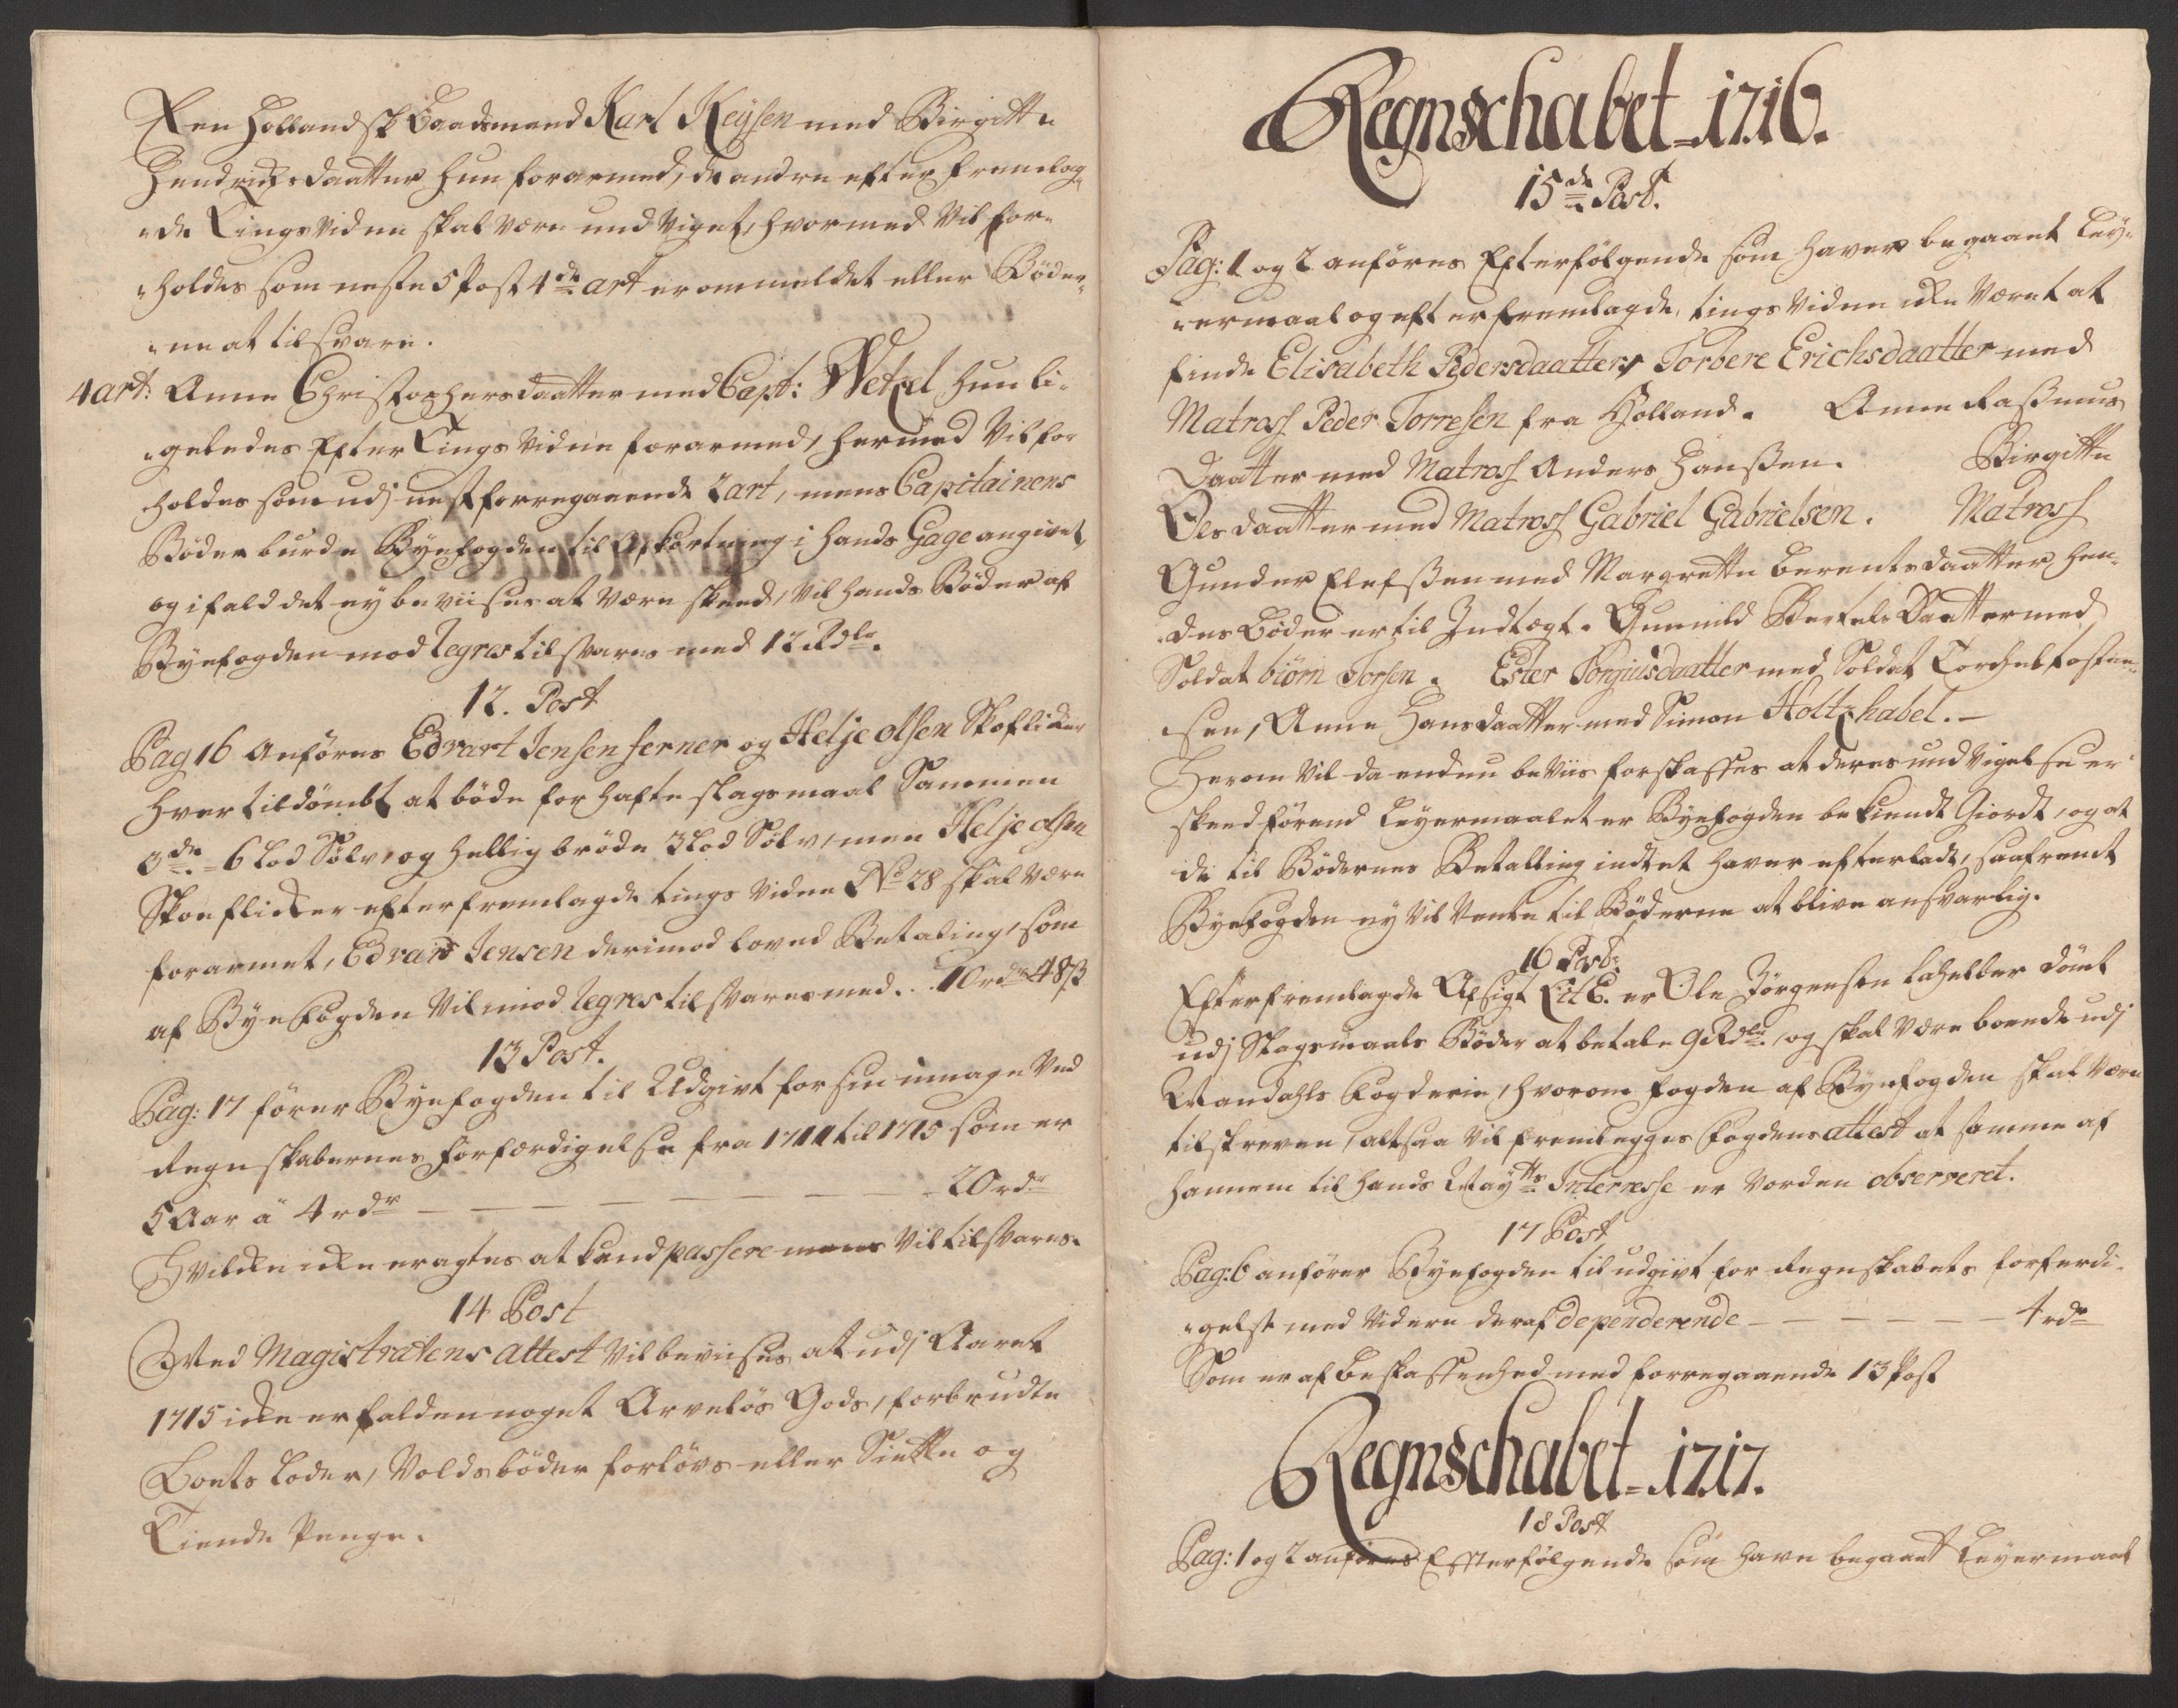 Een Hollandsk Baadsmand Karl Keysen med Birgitte
Hendrichsdaatter hun forarmed, de andre efter fremlag¬
„de Tings Vidne skal være und Viget, hvormed Vil for¬
„holdes som neste 5 Post 4de art er ommeldet eller Böder¬
„ne at tilsvare.
4 art: Anne Christophersdaatter med Capt: Wetzel hun li¬
„geledes Efter Tings Vidne forarmed, hermed Vil for
holdes som udj nestforregaaende 2 art, mens Capitainens
Böder burde Byefogden til Afkortning i hands Gage angivet,
og ifald det ey beviises at være skeed, Vil hands Böder af
Byefogden mod Regres tilsvares med 12 Rdlr.
12. Post
Pag 16 Anföres Edvart Jensen ferner og Helje olsen Skoflicker
hver tildömbt at böde for hafte slagsmaal Sammen
3de - 6 Lod Sölv, og helligbröde 3 Lod Sölv, men Helje olsen
Skoeflicker efter fremlagde tings Vidne No 28 skal være
forarmet, Edvard Jensen derimod loved Betaling, som
af Byefogden Vil imod Regres tilsvares med . . 10 rdr 48 ß
13 Post.
Pag: 17 förer Byefogden til Udgivt for sin umage Ved
Regnskabernes forfærdigelse fra 1711 til 1715 som er
5 Aar à 4 rdr — — — — — 20 rdr
Hvilcke icke eragtes at kand passere mens Vil tilsvares.
14 Post
Med Magistratens Attest Vil beviises at udj Aaret
1715 icke er falden noget Arvelös Gods, forbrudte
Boets Loder, Voldsböder forlövs eller Siette og
Tiende Penge.
Regnschabet - 1716.
15de Post.
Pag: 1 og 2 anföres Efterfölgende som haver begaaet Ley¬
„ermaal og efter fremlagde tings Vidne icke Været at
finde Elisabeth Pedersdaatter, Torbere Erichsdaatter med
Matross Peder Torresen fra Holland. Anne Rasmus
Daatter med Matross Anders Hanssen. Birgitte
Olsdaatter med Matross Gabriel Gabrielsen. Matross
Gunder Elefssen med Margrette Berentsdaatter, hen¬
„des Böder er til Indtægt. Gunnild Bertels Daatter med
Soldat biörn Torsen. Ester Torgiusdaatter med Soldat Torchel Tosten¬
„sen, Anne Hansdaatter med Simon Holtzhabel. —
Herom Vil da endnu beviis forskaffes at deres und Vigelse er
skeed förend Leyermaalet er Byefogden bekiendt Giordt, og at
de til Bödernes Betalling indtet haver efterladt, saafremt
Byefogden ey Vil Vente til Böderne at blive ansvarlig.
16 Post
Efter fremlagde Afsigt Lit E. er Ole Jörgensen Lahelber dömt
udj Slagsmaals Böder at betale 9 Rdlr, og skal Være boende udj
Mandahls Fogderie, hvorom fogden af Byefogden skal være
tilskreven, altsaa Vil fremlegges Fogdens attest at samme af
hannem til hands Mayts Interresse er Vorden observeret.
17 Post
Pag: 6 anförer Byefogden til udgivt for Regnskabets forferdi¬
„gelse med Videre deraf dependerende — — — — — 4 rdr
Som er af beskaffenhed med forregaaende 13 Post
Regnschabet - 1717.
18 Post
Pag: 1 og 2 anföres Efterfölgende som have begaaet Leyermaal